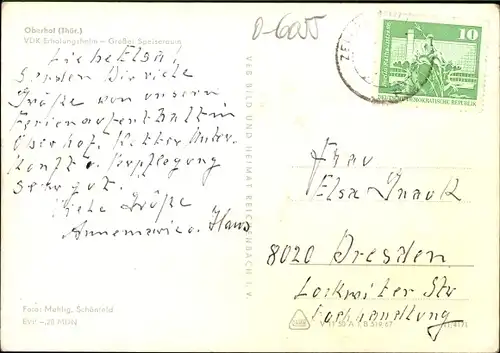 Oberhof (Thür.)
VDK Erholungsheim – Großer Speiseraum
D-6055
Liebe Elsa!
Senden Dir viele
Grüße von unserm
Ferienaufenthalt in
Oberhof. Wetter Unter-
kunft u. Verpflegung
sehr gut.
Viele Grüße
Annemarie u. Hans
Foto: Mahlig, Schönfeld
EVP –,20 MDN
VEB BILD UND HEIMAT REICHENBACH I. V.
10
DEUTSCHE DEMOKRATISCHE REPUBLIK
Frau
Elsa
8020 Dresden
Lockwitzer Str
Fachhandlung
V 11 50 A 1 B 519/67